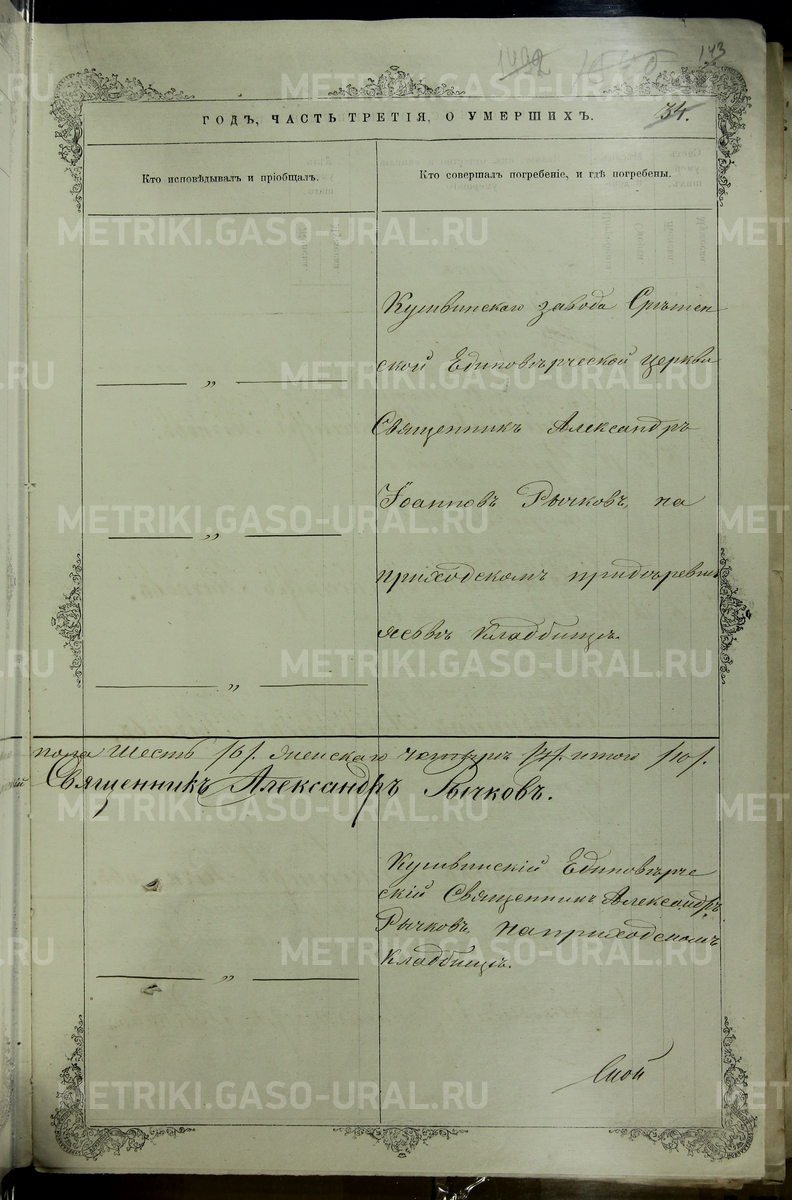 143
1492
34.
ГОДЪ, ЧАСТЬ ТРЕТІЯ, О УМЕРШИХЪ.
Кто исповѣдывалъ и пріобщалъ.
Кто совершалъ погребеніе, и гдѣ погребены.
Кушвинскаго завода Срѣтен
ской Единовѣрческой церкви
Священникъ Александръ
Іоанновъ Рычковъ, на
приходскомъ
кладбищѣ.
пола шесть /6/. женскаго четыре /4/. итого /10/.
Священникъ Александръ Рычковъ.
Кушвинскій Единовѣрче
скій Священникъ Александръ
Рычковъ, на приходскомъ
кладбищѣ.
METRIKI.GASO-URAL.RU